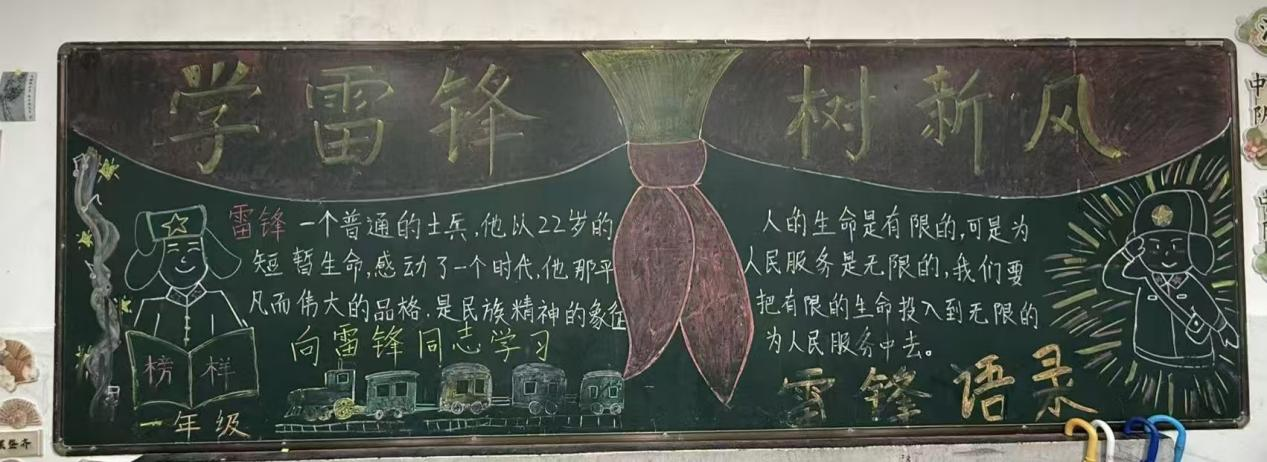 学雷锋 树新风
雷锋一个普通的士兵,他以22岁的
短暂生命,感动了一个时代,他那平
凡而伟大的品格.是民族精神的象征
向雷锋同志学习
榜样
一年级
人的生命是有限的,可是为
人民服务是无限的,我们要
把有限的生命投入到无限的
为人民服务中去。
雷锋语录
中队